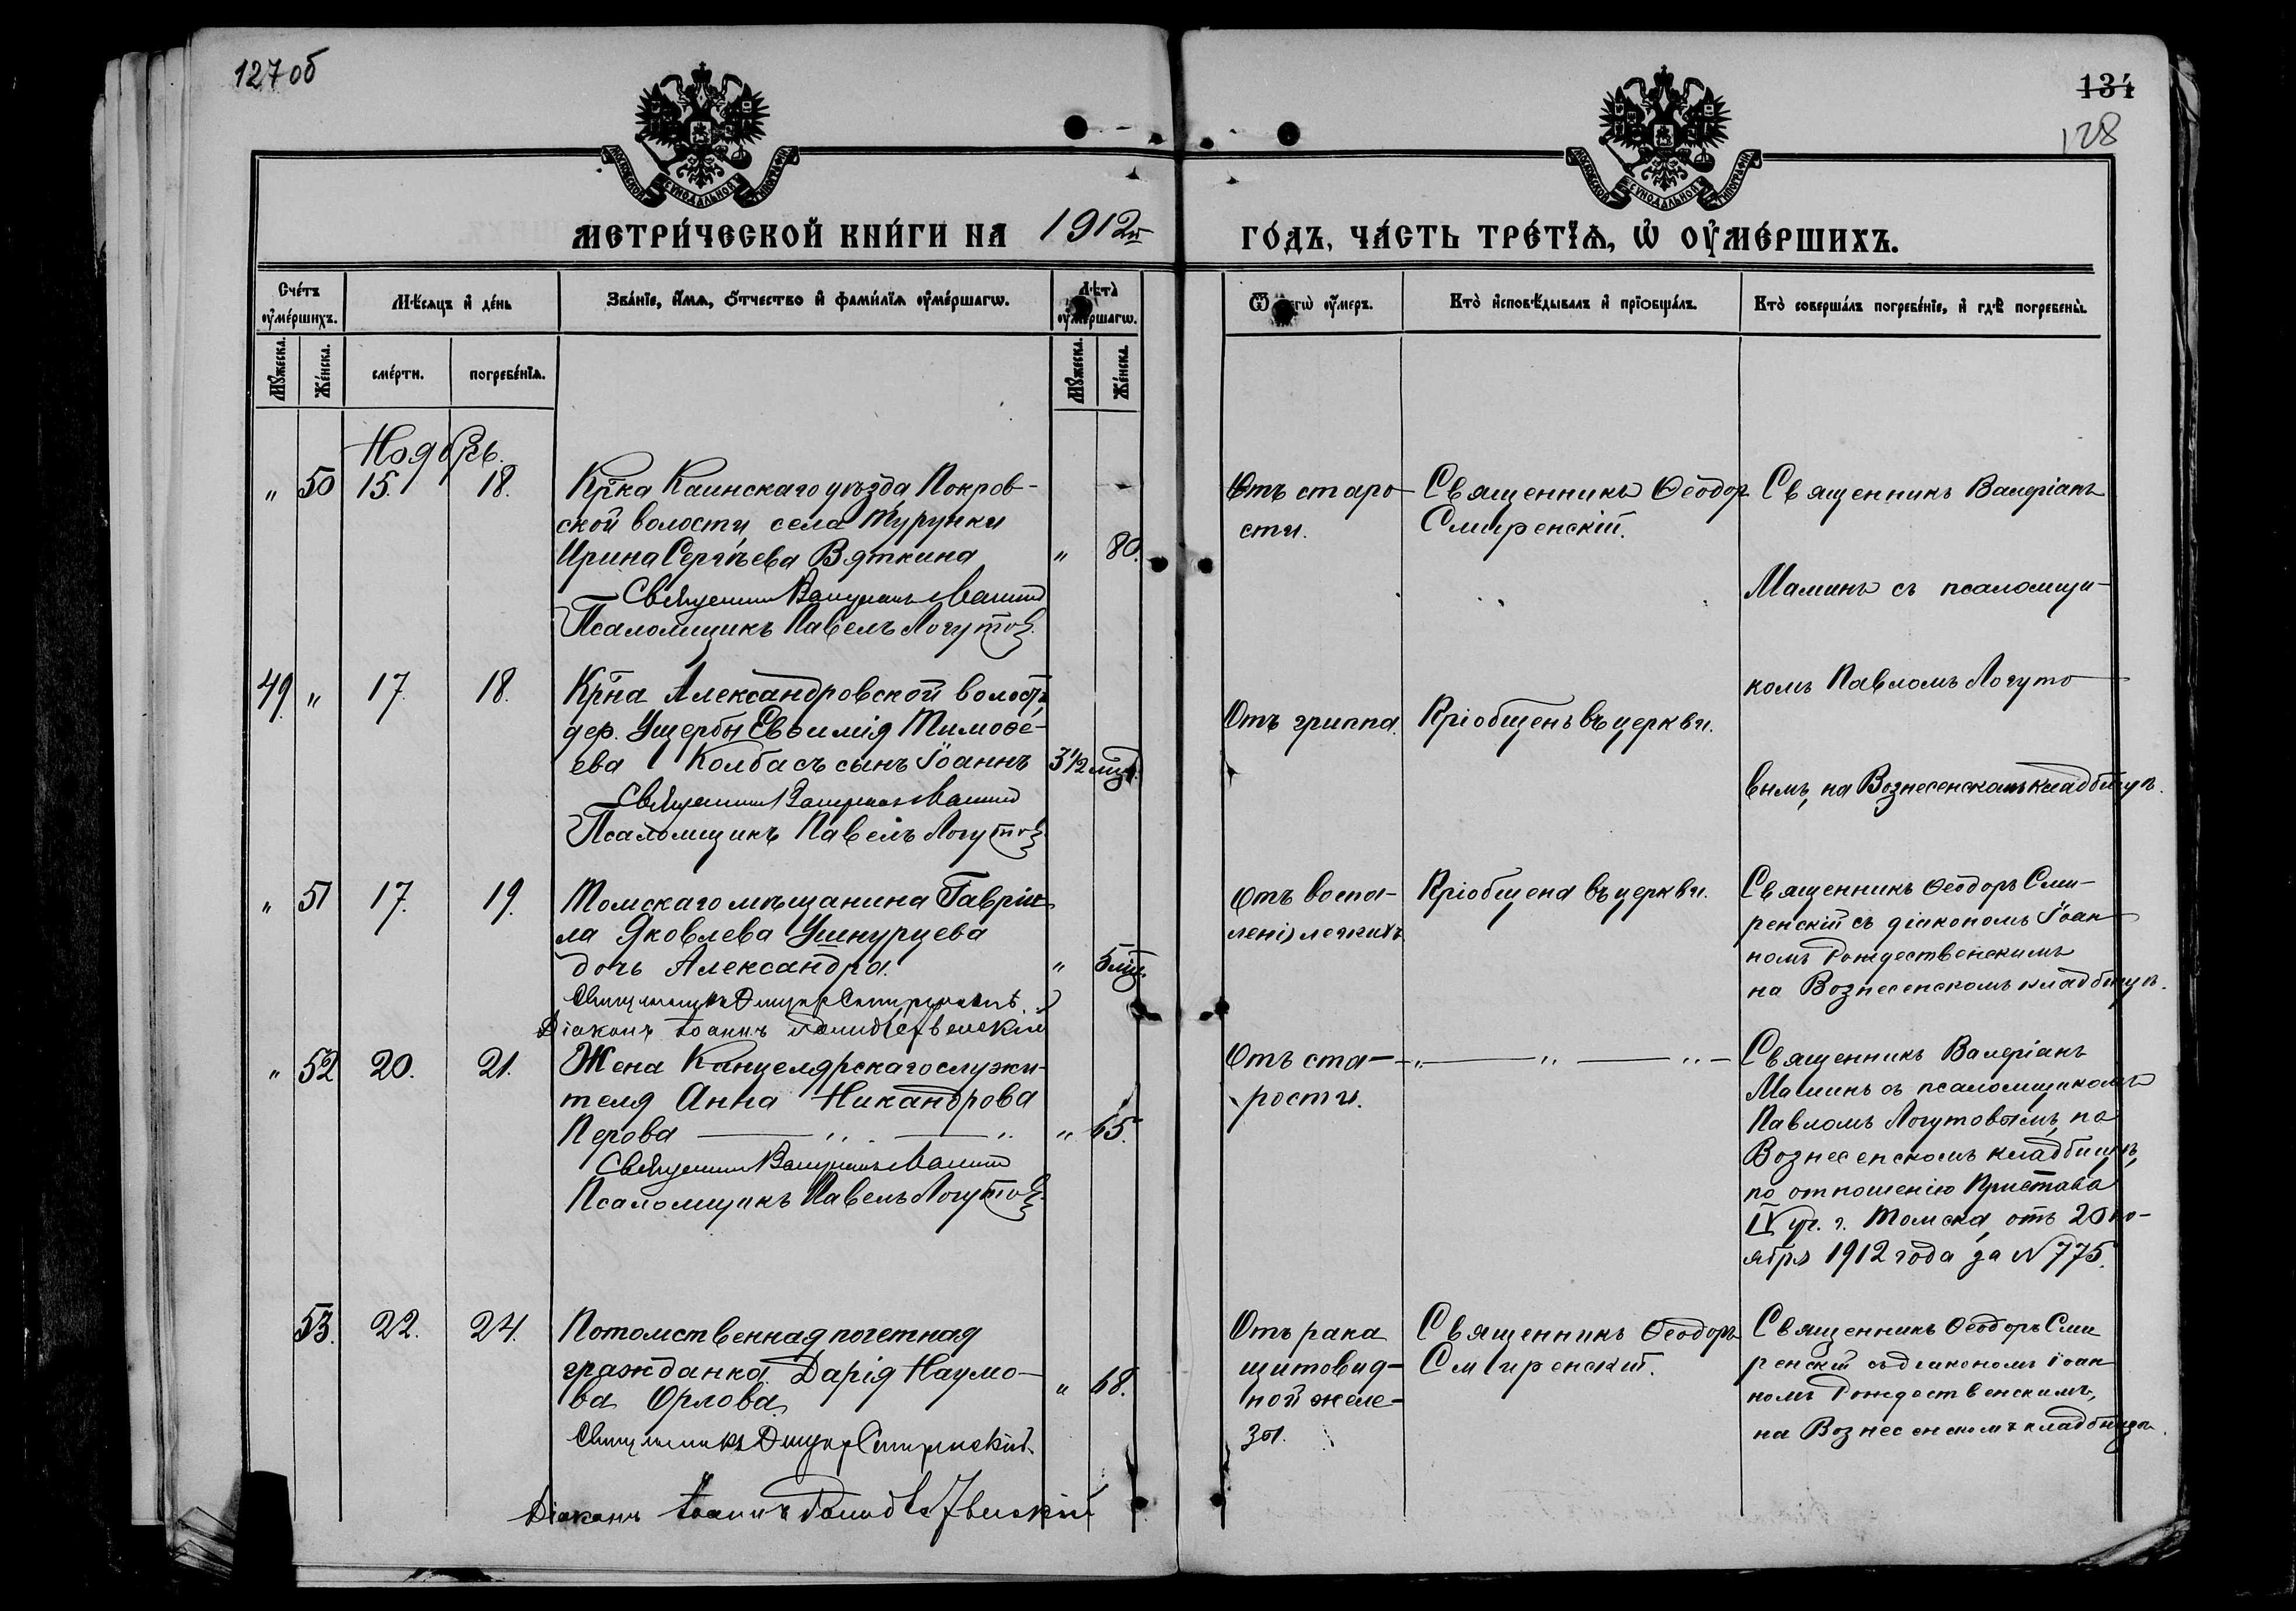 127 об
134
128
МОСКОВСКОЙ СѴНОДАЛЬНОЙ ТИПОГРАФІИ
МОСКОВСКОЙ СѴНОДАЛЬНОЙ ТИПОГРАФІИ
МЕТРИ́ЧЕСКОЙ КНИ́ГИ НА 1912й
ГО́ДЪ, ЧА́СТЬ ТРЕ́ТІѦ, Ѡ҆ ОУ҆МЕ́РШИХЪ.
Сче́тъ оу҆ме́ршихъ.
Мѣ́сяцъ и҆ де́нь
Зва́нїе, и҆́мя, ѻ҆́тчество и҆ фами́лїя оу҆ме́ршагѡ.
Лѣ́та̀ оу҆ме́ршагѡ.
Мꙋ́жеска.
Же́нска.
сме́рти.
погребе́нїѧ.
Мꙋ́жеска.
Же́нска.
оу҆́меръ.
Кто̀ и҆сповѣ́дывалъ и҆ прїѡбща́лъ.
Кто̀ соверша́лъ погребе́нїе, и҆ гдѣ̀ погребены̀.
Ноябрь.
„ 50 15. 18.
Кр҃ка Каинскаго уѣзда Покров-
ской волости, села Турунки
Ирина Сергѣева Вяткина „ 80.
Священникъ Валеріанъ Маминъ
Псаломщикъ Павелъ Логутов
Отъ старо-
сти.
Священникъ Ѳеодор
Смиренскій.
Священникъ Валеріанъ
Маминъ съ псаломщи-
комъ Павломъ Логуто-
вымъ, на Вознесенскомъ кладбищѣ.
49. „ 17. 18.
Кр҃на Александровской волост,
дер. Ущербы Евѳимія Тимоѳе-
ева Колбасъ сынъ Іоаннъ 3½ мѣс.
Священникъ Валеріанъ Маминъ
Псаломщикъ Павелъ Логутов
Отъ гриппа.
Пріобщенъ въ церкви.
„ 51 17. 19.
Томскаго мѣщанина Гавріи-
ла Яковлева Ушнурцева
дочь Александра. „ 5 мѣс.
Священникъ Ѳеодоръ Смиренскій
Діаконъ Іоаннъ Рождественскій
Отъ воспа-
ленія легкихъ
Пріобщена въ церкви.
Священникъ Ѳеодоръ Сми-
ренскій съ діакономъ Іоан-
номъ Рождественскимъ
на Вознесенскомъ кладбищѣ.
„ 52 20. 21.
Жена Канцелярскаго служи-
теля Анна Никандрова
Перова — „ — „ „ 65.
Священникъ Валеріанъ Маминъ
Псаломщикъ Павелъ Логутов
Отъ ста-
рости.
— „ — „ — „ —
Священникъ Валеріанъ
Маминъ съ псаломщикомъ
Павломъ Логутовымъ, на
Вознесенскомъ кладбищѣ,
по отношенію Пристава
IV уч. г. Томска, отъ 20 но-
ября 1912 года за № 775.
53. 22. 24.
Потомственная почетная
гражданка Дарія Наумо-
ва Орлова „ 68.
Священникъ Ѳеодоръ Смиренскій
Діаконъ Іоаннъ Рождественскій
Отъ рака
щитовид-
ной желе-
зы.
Священникъ Ѳеодоръ
Смиренскій.
Священникъ Ѳеодоръ Сми
ренскій съ діакономъ Іоан
номъ Рождественскимъ,
на Вознесенскомъ кладбищѣ.